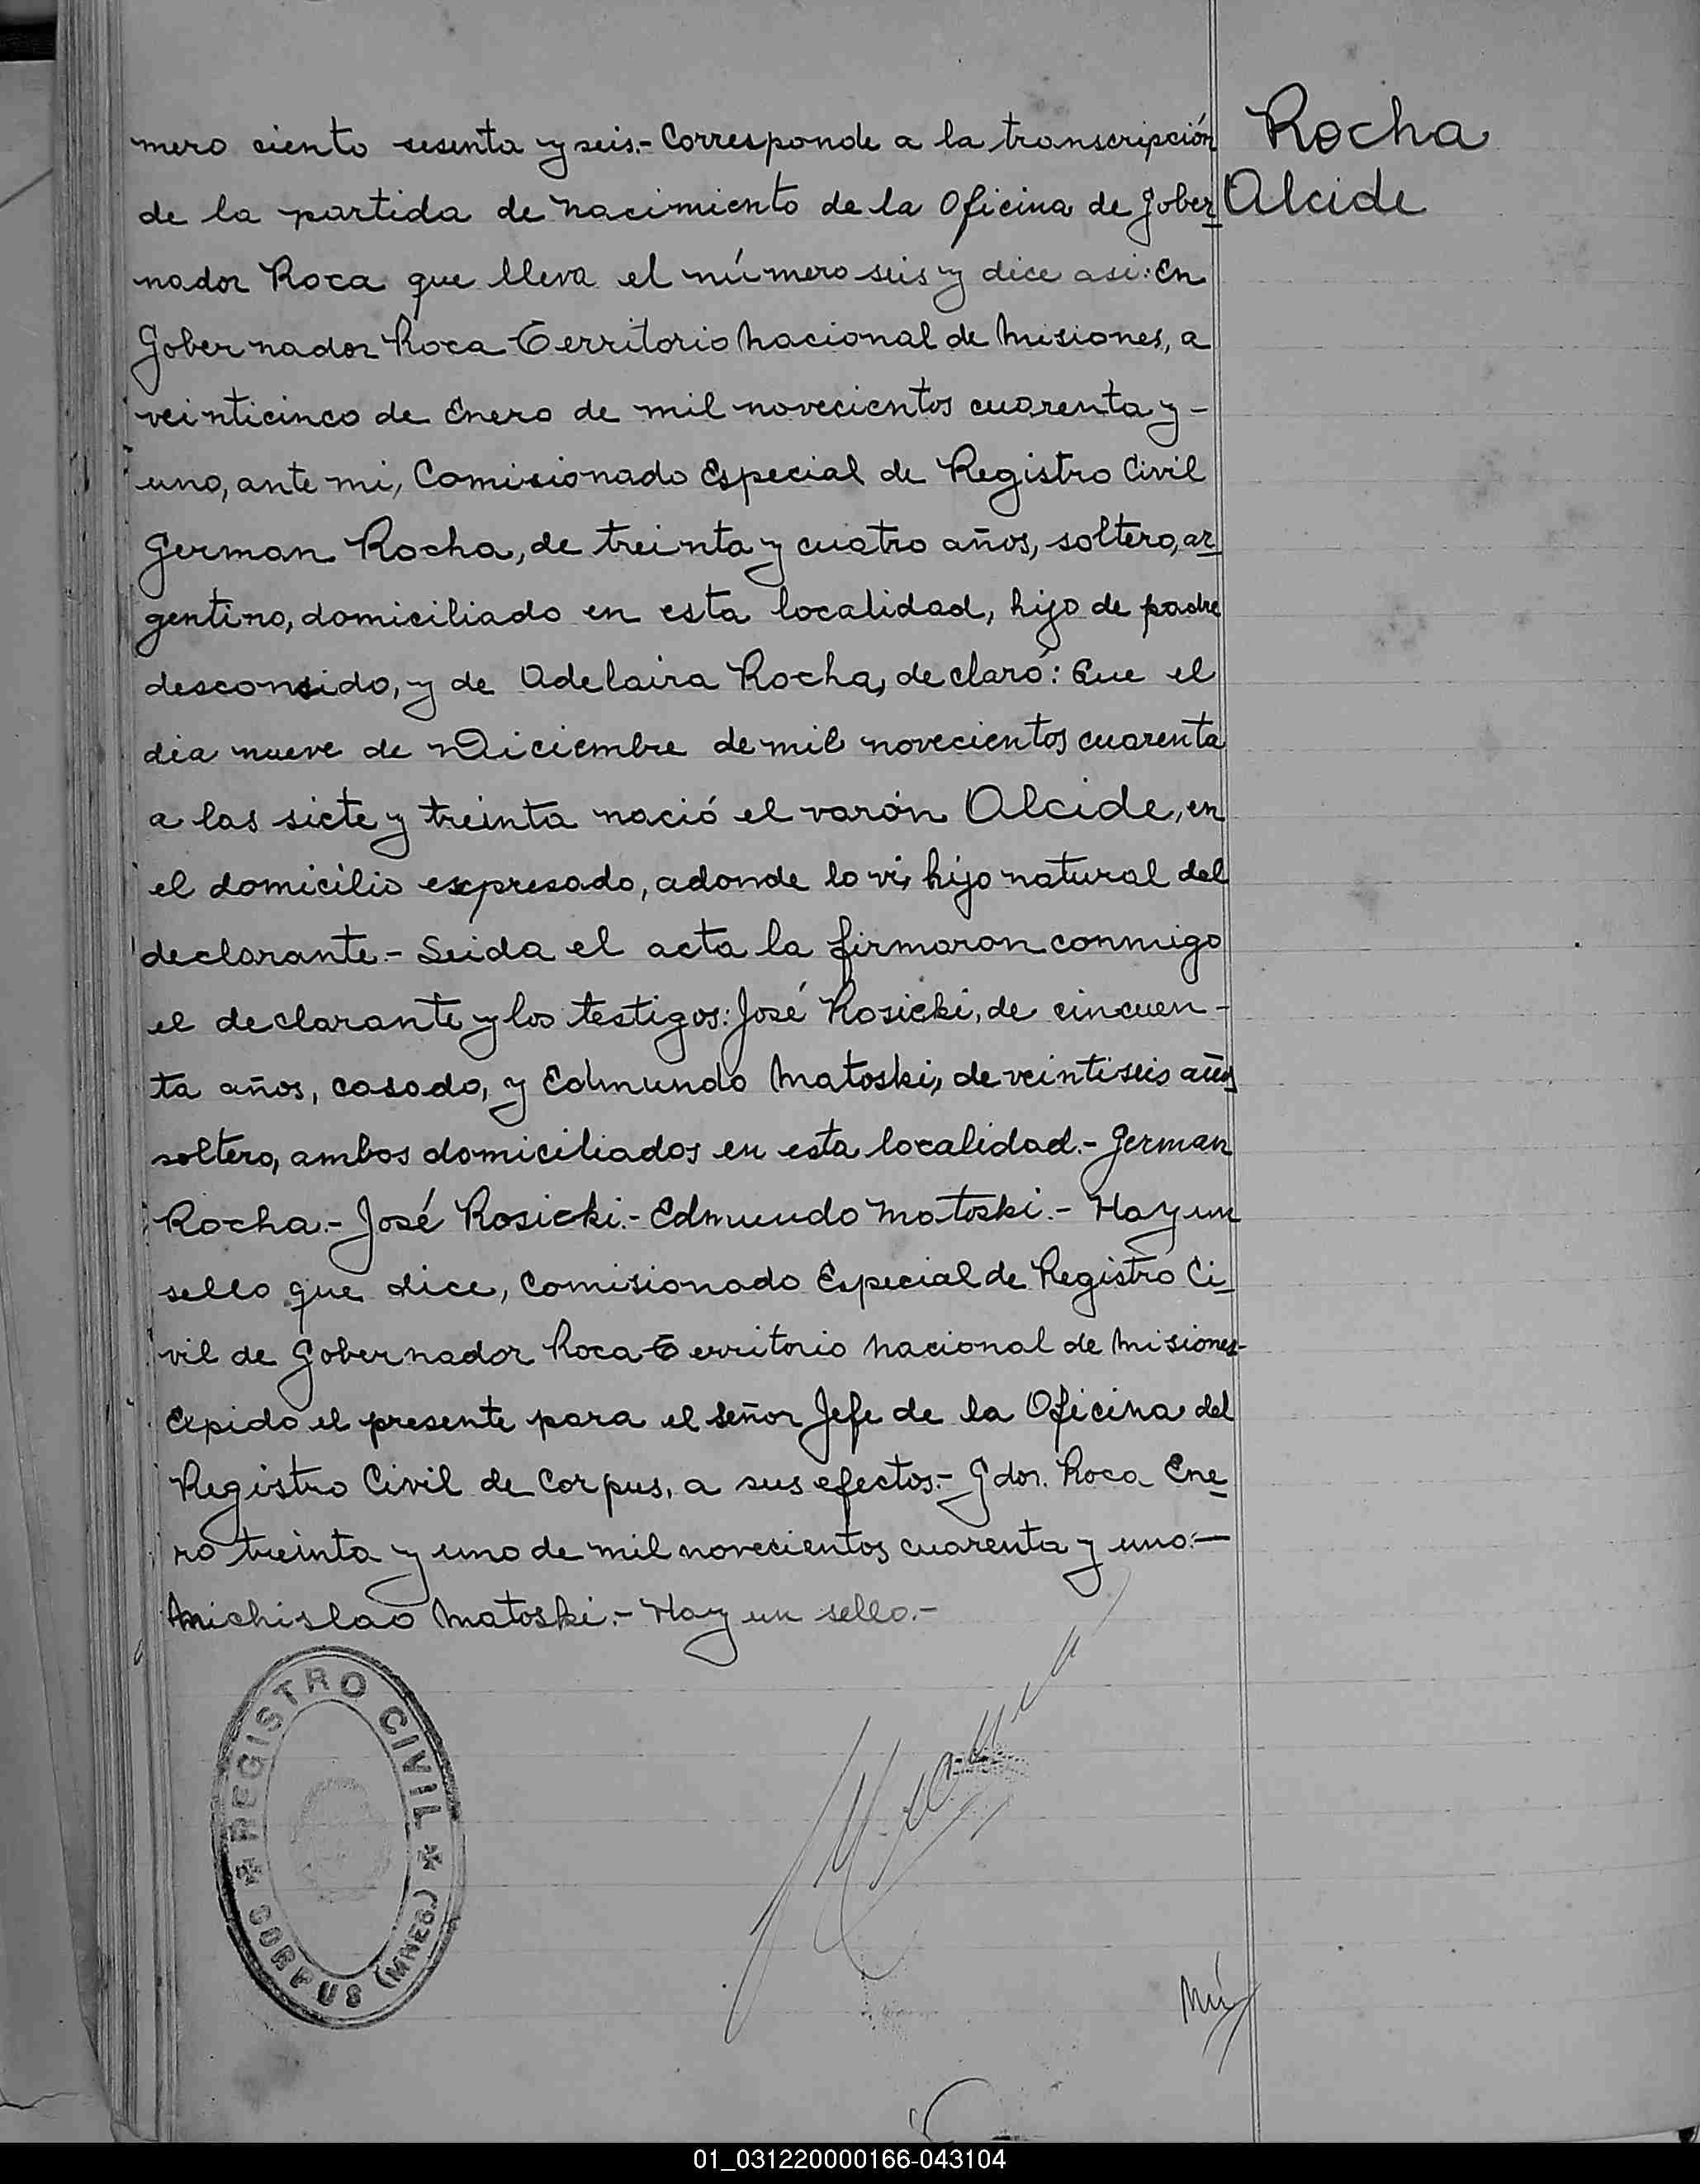 mero ciento sesenta y seis.- Corresponde a la transcripción
Rocha
de la partida de nacimiento de la Oficina de Gober
Alcide
nador Roca que lleva el número seis y dice asi: En
Gobernador Roca Territorio Nacional de Misiones, a
veinticinco de Enero de mil novecientos cuarenta y -
uno, ante mi, Comisionado Especial de Registro Civil
German Rocha, de treinta y cuatro años, soltero, ar
gentino, domiciliado en esta localidad, hijo de padre
desconsido, y de Adelaira Rocha, declaró: Que el
dia nueve de Diciembre de mil novecientos cuarenta
a las siete y treinta nació el varón Alcide, en
el domicilio expresado, adonde lo vi, hijo natural del
declarante.- Leida el acta la firmaron conmigo
el declarante y los testigos: José Rosicki, de cincuen-
ta años, casado, y Edmundo Matoski, de veintiseis años
soltero, ambos domiciliados en esta localidad.- German
Rocha.- José Rosicki.- Edmundo Matoski.- Hay un
sello que dice, Comisionado Especial de Registro Ci
vil de Gobernador Roca Territorio Nacional de Misiones-
Expido el presente para el Señor Jefe de la Oficina del
Registro Civil de Corpus, a sus efectos.- Gdor. Roca Ene
ro treinta y uno de mil novecientos cuarenta y uno.-
Michislao Matoski.- Hay un sello.-
REGISTRO CIVIL
CORPUS (MNES.)
Nú
01_031220000166-043104